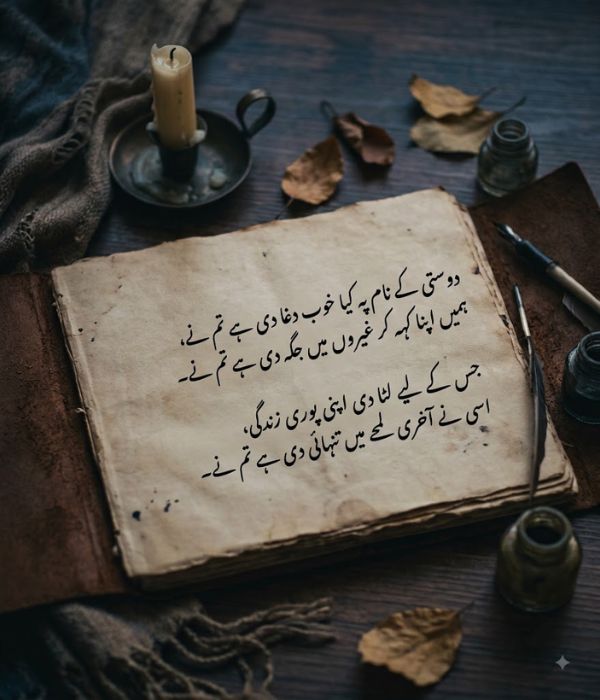 دوستی کے نام پہ کیا خوب دغا دی ہے تم نے،
ہمیں اپنا کہہ کر غیروں میں جگہ دی ہے تم نے۔
جس کے لیے لٹا دی اپنی پوری زندگی،
اسی نے آخری لمحے میں تنہائی دی ہے تم نے۔